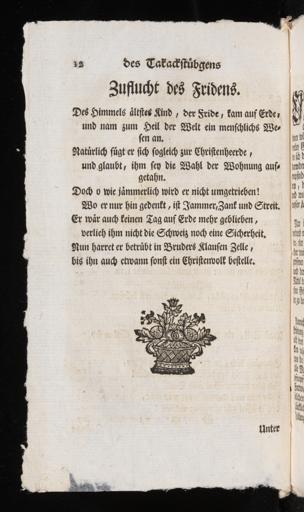 12 des Takackstübgens
Zuflucht des Fridens.
Des Himmels ältstes Kind, der Fride, kam auf Erde,
und nam zum Heil der Welt ein menschlichs We-
sen an.
Natürlich fügt er sich sogleich zur Christenheerde,
und glaubt, ihm sey die Wahl der Wohnung auf-
getahn.
Doch o wie jämmerlich wird er nicht umgetrieben!
Wo er nur hin gedenkt, ist Jammer, Zank und Streit.
Er wär auch keinen Tag auf Erde mehr geblieben,
verlieh ihm nicht die Schweiz noch eine Sicherheit.
Nun harret er betrübt in Bruders Klausen Zelle,
bis ihn auch etwann sonst ein Christenvolk bestelle.
Unter